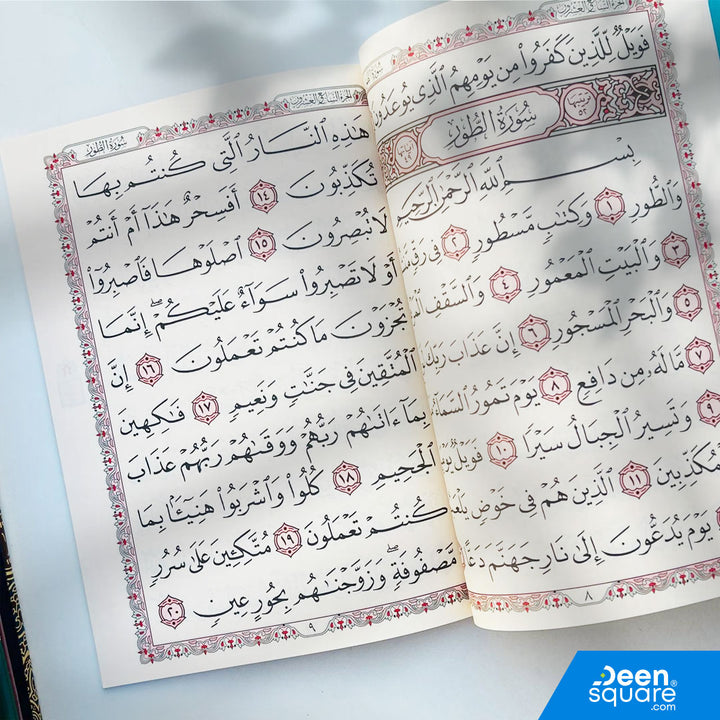 فَوَيْلٌ لِّلَّذِينَ كَفَرُوا۟ مِن يَوْمِهِمُ ٱلَّذِى يُوعَدُونَ
ترتيبها ٥٢ سُورَةُ الطُّورِ آياتها ٤٩
بِسْمِ ٱللَّهِ ٱلرَّحْمَٰنِ ٱلرَّحِيمِ
وَٱلطُّورِ ١ وَكِتَٰبٍ مَّسْطُورٍ ٢ فِى رَقٍّ
٣ وَٱلْبَيْتِ ٱلْمَعْمُورِ ٤ وَٱلسَّقْفِ
٥ وَٱلْبَحْرِ ٱلْمَسْجُورِ ٦ إِنَّ عَذَابَ رَبِّكَ
٧ مَّا لَهُۥ مِن دَافِعٍ ٨ يَوْمَ تَمُورُ ٱلسَّمَآءُ
٩ وَتَسِيرُ ٱلْجِبَالُ سَيْرًا ١٠ فَوَيْلٌ
١١ ٱلَّذِينَ هُمْ فِى خَوْضٍ
يَوْمَ يُدَعُّونَ إِلَىٰ نَارِ جَهَنَّمَ دَعًّا
٨
الجزء السابع والعشرون
سُورَةُ الطُّورِ
هَٰذِهِ ٱلنَّارُ ٱلَّتِى كُنتُم بِهَا
تُكَذِّبُونَ ١٤ أَفَسِحْرٌ هَٰذَآ أَمْ أَنتُمْ
لَا تُبْصِرُونَ ١٥ ٱصْلَوْهَا فَٱصْبِرُوٓا۟
أَوْ لَا تَصْبِرُوا۟ سَوَآءٌ عَلَيْكُمْ ۖ إِنَّمَا
تُجْزَوْنَ مَا كُنتُمْ تَعْمَلُونَ ١٦ إِنَّ
ٱلْمُتَّقِينَ فِى جَنَّٰتٍ وَنَعِيمٍ ١٧ فَٰكِهِينَ
بِمَآ ءَاتَىٰهُمْ رَبُّهُمْ وَوَقَىٰهُمْ رَبُّهُمْ عَذَابَ
ٱلْجَحِيمِ ١٨ كُلُوا۟ وَٱشْرَبُوا۟ هَنِيٓـًٔۢا بِمَا
كُنتُمْ تَعْمَلُونَ ١٩ مُتَّكِـِٔينَ عَلَىٰ سُرُرٍ
مَّصْفُوفَةٍ ۖ وَزَوَّجْنَٰهُم بِحُورٍ عِينٍ ٢٠
٩
Deen®
square
.com